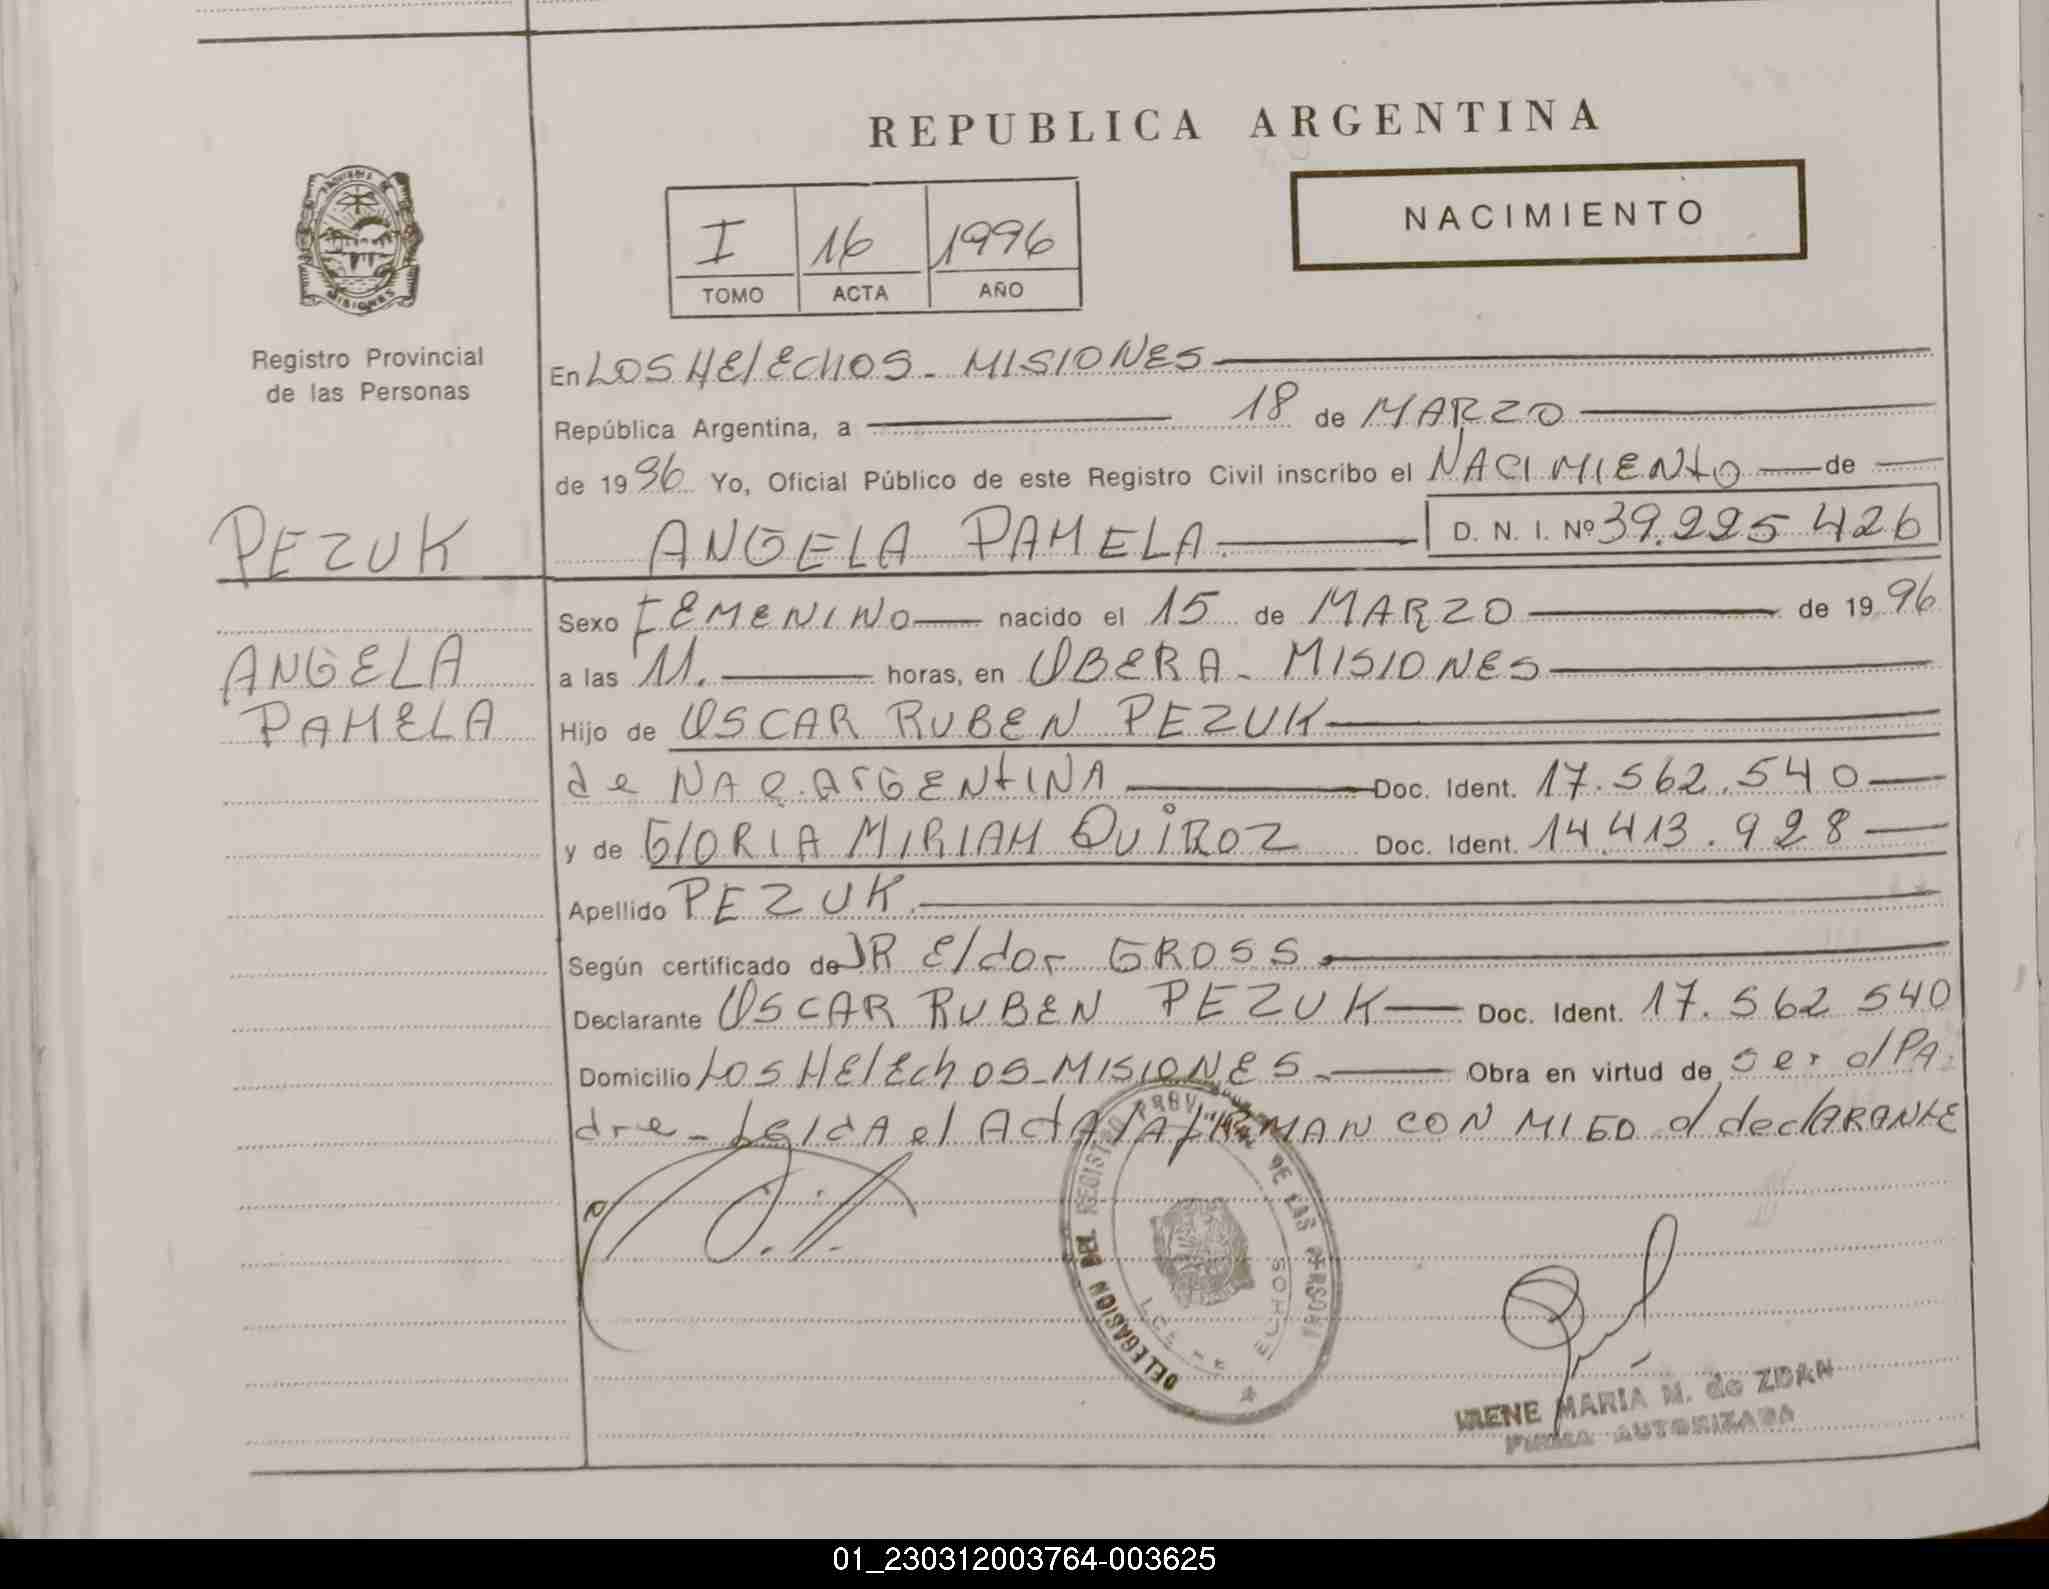 REPUBLICA ARGENTINA
NACIMIENTO
I 16 1996
TOMO ACTA AÑO
PROVINCIA DE
MISIONES
Registro Provincial
de las Personas
En LOS HElEcHOS - MISIONES
República Argentina, a 18 de MARZO
de 1996 Yo, Oficial Público de este Registro Civil inscribo el NACIMIENtO de
PEZUK
ANGELA PAMELA. D. N. I. Nº 39.225 426
Sexo FEMENINO nacido el 15 de MARZO de 1996
ANGELA
a las 11. horas, en OBERA - MISIONES
PAMELA
Hijo de OSCAR RUBEN PEZUK
de NAC. ArGENtINA Doc. Ident. 17.562.540
y de GlORIA MIRIAM QUiROZ Doc. Ident. 14.413.928
Apellido PEZUK.
Según certificado de DR Eldor GROSS
Declarante OSCAR RUBEN PEZUK Doc. Ident. 17.562 540
Domicilio LOS HElEchOS - MISIONES Obra en virtud de ser el PA
dre - LeidA el ActA lA fIRMAN CON MIGO el declARANtE
DELEGASION DEL REGISTRO PROVINCIAL DE LAS PERSONAS
IRENE MARIA M. de ZDAN
FIRMA AUTORIZADA
01_230312003764-003625